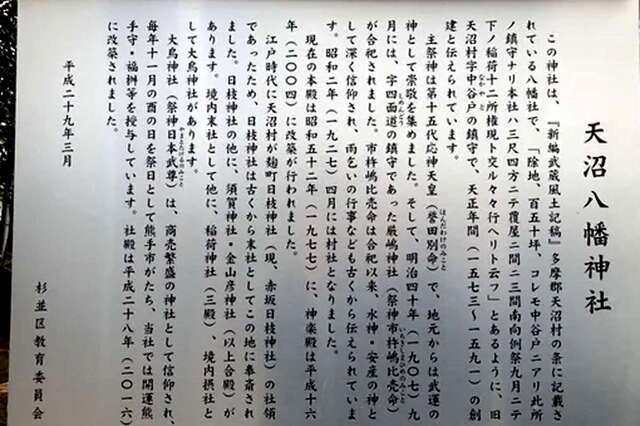 天沼八幡神社
この神社は、『新編武蔵風土記稿』多摩郡天沼村の条に記載さ
れている八幡社で、「除地、百五十坪、コレモ中谷戸ニアリ此所
ノ鎮守ナリ本社ハ三尺四方ニテ覆屋二間ニ三間南向側祭九月ニテ
下ノ稲荷十二所権現ト交ル々々行ヘリト云フ」とあるように、旧
天沼村字中谷戸の鎮守で、天正年間(一五七三~一五九一)の創
なかやと
建と伝えられています。
主祭神は第十五代応神天皇(誉田別命)で、地元からは武運の
ほんだわけのみこと
神として崇敬を集めました。そして、明治四十年(一九〇七)九
月には、字四面道の鎮守であった厳嶋神社(祭神市杵嶋比売命)
しめんどう
いちきしまひめのみこと
が合祀されました。市杵嶋比売命は合祀以来、水神・安産の神と
して深く信仰され、雨乞いの行事なども古くから伝えられていま
す。昭和二年(一九二七)四月には村社となりました。
現在の本殿は昭和五十二年(一九七七)に、神楽殿は平成十六
年(二〇〇四)に改築が行われました。
江戸時代に天沼村が麹町日枝神社(現、赤坂日枝神社)の社領
であったため、日枝神社は古くから末社としてこの地に奉斎され
ました。日枝神社の他に、須賀神社・金山彦神社(以上合殿)が
あります。境内末社として他に、稲荷神社(三殿)、境内摂社と
して大鳥神社があります。
大鳥神社(祭神日本武尊)は、商売繁盛の神社として信仰され、
やまとたけるのみこと
毎年十一月の酉の日を祭日として熊手市がたち、当社では開運熊
手守・福桝等を授与しています。社殿は平成二十八年(二〇一六)
に改築されました。
平成二十九年三月
杉並区教育委員会